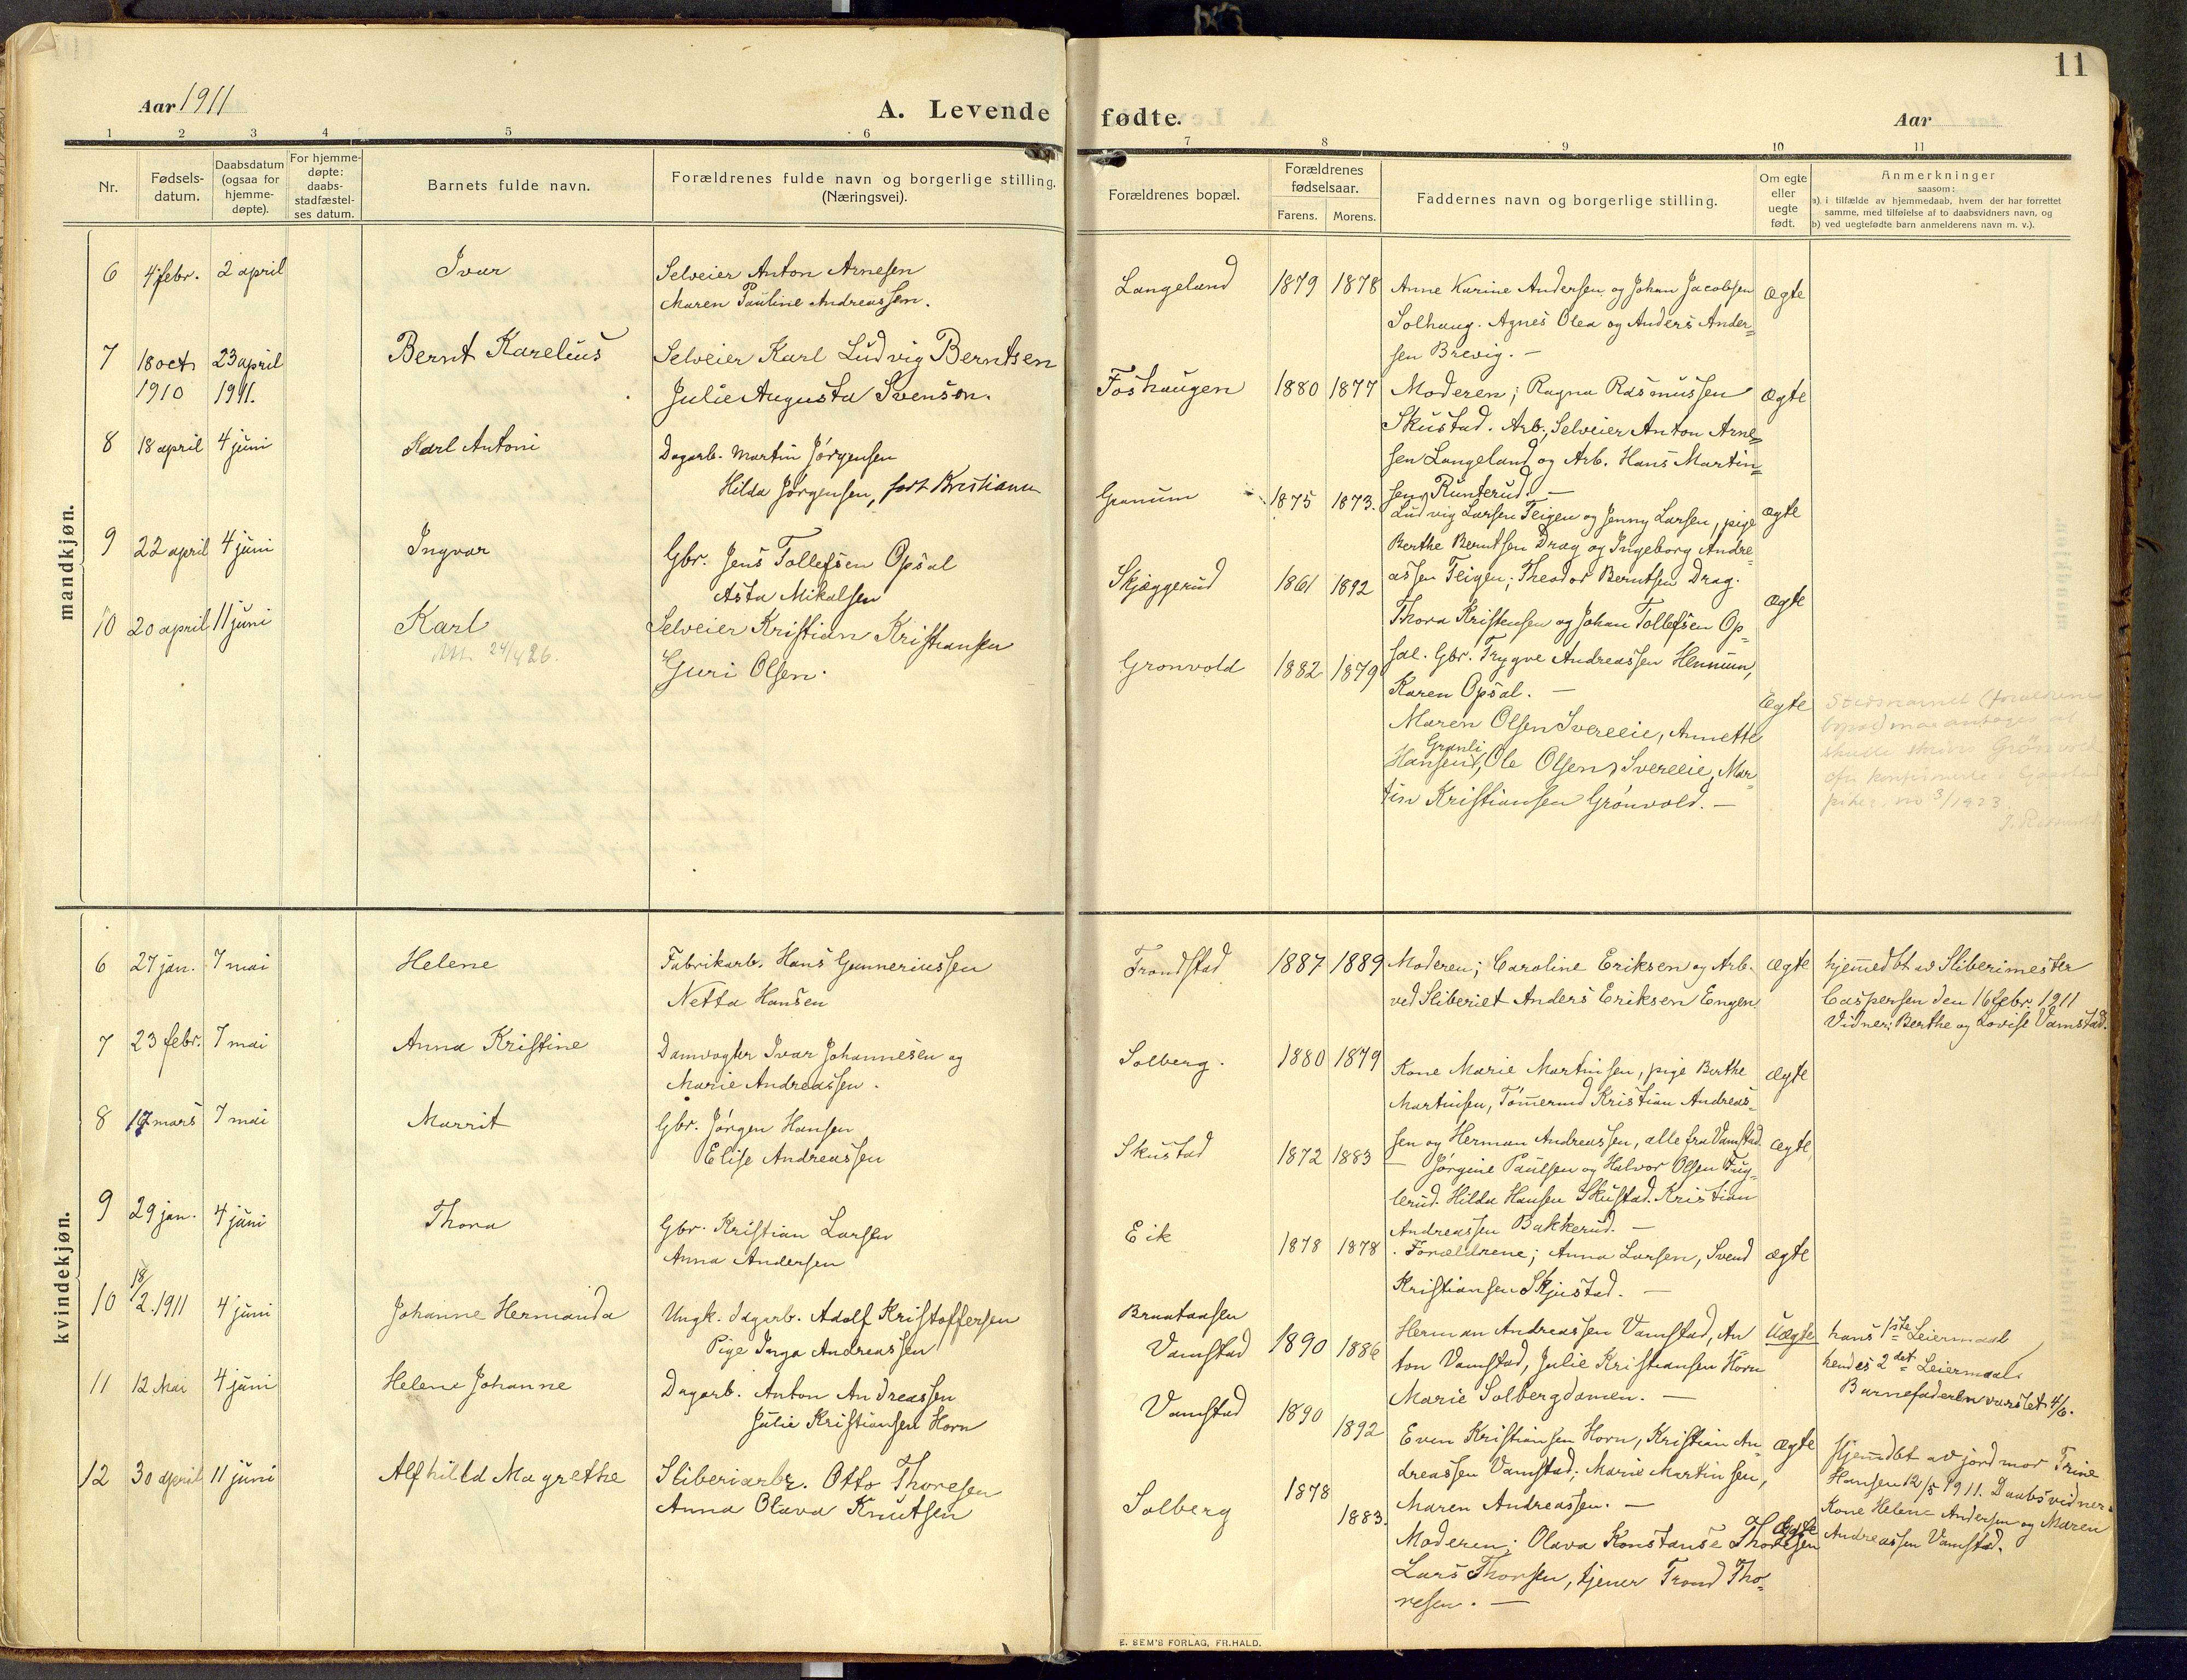 11
Aar 1911
A. Levende fødte.
Aar
1 2 3 4 5 6 7 8 9 10 11
Nr.
Fødsels-
datum.
Daabsdatum
(ogsaa for
hjemme-
døpte).
For hjemme-
døpte:
daabs-
stadfæstel-
ses datum.
Barnets fulde navn.
Forældrenes fulde navn og borgerlige stilling.
(Næringsvei).
Forældrenes bopæl.
Forældrenes
fødselsaar.
Farens. Morens.
Faddernes navn og borgerlige stilling.
Om egte
eller
uegte
født.
Anmerkninger
saasom:
a) i tilfælde av hjemmedaab, hvem der har forrettet
samme, med tilføielse af to daabsvidners navn, og
b) ved uegtefødte barn anmelderens navn m. v.).
mandkjøn.
6 4 febr. 2 april Ivar
Selveier Anton Arnesen
Maren Pauline Andreassen.
Langeland 1879 1878
Anne Karine Andersen og Johan Jacobsen
Solhaug. Agnes Olea og Anders Ander=
sen Brevig. —
Ægte
7 18 oct 23 april Bernt Karelius
1910 1911.
Selveier Karl Ludvig Berntsen
Julie Augusta Svenson.
Foshaugen 1880 1877
Moderen; Ragna Rasmussen
Skustad. Arb., Selveier Anton Arne=
sen Langeland og Arb. Hans Martin=
sen Runterud. —
Ægte
8 18 april 4 juni Karl Antoni
Dagarb. Martin Jørgensen
Hilda Jørgensen,
Granum 1875 1873.
Ludvig Larsen Teigen og Jenny Larsen, pige
Berthe Berntsen Drag og Ingeborg Andre=
assen Teigen; Theodor Berntsen Drag.
ægte
9 22 april 4 juni Ingvar
Gbr. Jens Tollefsen Opsal
Asta Mikalsen
Skjæggerud 1861 1892
Thora Kristensen og Johan Tollefsen Op=
sal. Gbr. Trygve Andreassen Hennum,
Karen Opsal. —
Ægte
10 20 april 11 juni Karl
Selveier Kristian Kristiansen
Guri Olsen.
Gronvold 1882 1879
Maren Olsen Svereeie, Annette
Granli
Hansen, Ole Olsen Svereeie, Mar=
tin Kristiansen Grønvold. —
Ægte
kvindekjøn.
6 27 jan. 7 mai Helene
Fabrikarb. Hans Gunneriussen
Netta Hansen
Trondstad 1887 1889
Moderen; Caroline Eriksen og Arb.
ved Sliberiet Anders Eriksen Engen
Ægte
hjemedbt av Sliberimester
Caspersen den 16 febr. 1911
Vidner: Berthe og Lovise Vamstad.
7 23 febr. 7 mai Anna Kristine
Damvogter Ivar Johannesen og
Marie Andreassen.
Solberg. 1880 1879
Kone Marie Martinsen, pige Berthe
Martinsen, Tømermd Kristian Andreas=
sen og Herman Andreassen, alle fra Vamstad.
Ægte
8 17 mars 7 mai Marrit
Gbr. Jørgen Hansen
Elise Andreassen
Skustad 1872 1883
— Jørgine Paulsen og Halvor Olsen Fug=
lerud. Hilda Hansen Skustad. Kristian
Andreassen Bakkerud. —
Ægte
9 29 jan. 4 juni Thora
Gbr. Kristian Larsen
Anna Andersen
Eik 1878 1878
Forældrene; Anna Larsen, Svend
Kristiansen Skjustad. —
ægte
10 18/2.1911 4 juni Johanne Hermanda
Ungk. Dagarb. Adolf Kristoffersen
Pige Inga Andreassen
Braataasen
Vamstad 1890 1886
Herman Andreassen Vamstad, An
ton Vamstad, Julie Kristiansen Horn
Marie Solbergdamen. —
Uægte
hans 1ste Leiermaal
hendes 2det Leiermaal
Barnefaderen varslet 4/6.
11 12 Mai 4 juni Helene Johanne
Dagarb. Anton Andreassen
Julie Kristiansen Horn
Vamstad 1890 1892
Even Kristiansen Horn, Kristian An=
dreassen Vamstad; Marie Martinsen,
Maren Andreassen. —
Ægte
Hjemdbt av jordmor Trine
Hansen 12/5 1911. Daabsvidner.
Kone Helene Andersen og Maren
Andreassen Vamstad.
12 30 april 11 juni Alfhild Magrethe
Sliberiarbr. Otto Thoresen
Anna Olava Knutsen
Solberg 1878 1883.
Moderen; Olava Konstanse Thoresen
Lars Thorsen, tjener Trond Tho=
resen. —
Ægte
E. SEM'S FORLAG, FR.HALD.